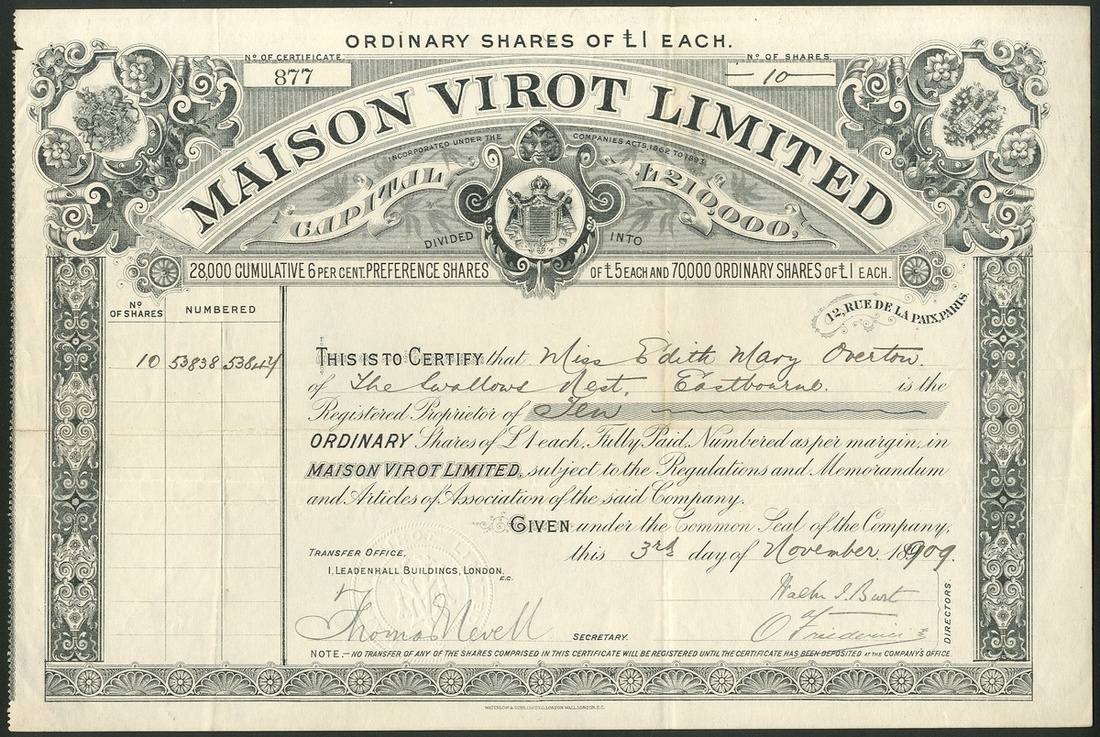 ORDINARY SHARES OF £1 EACH.
Nº OF CERTIFICATE
877
Nº OF SHARES
10
MAISON VIROT LIMITED
INCORPORATED UNDER THE COMPANIES ACTS, 1862 TO 1893.
CAPITAL £210,000,
DIVIDED INTO
28,000 CUMULATIVE 6 PER CENT. PREFERENCE SHARES OF £5 EACH AND 70,000 ORDINARY SHARES OF £1 EACH.
Nº OF SHARES NUMBERED
12, RUE DE LA PAIX, PARIS.
10 53838 53847
THIS IS TO CERTIFY that Miss Edith Mary Overton.
of The Swallows Nest, Eastbourne. is the
Registered Proprietor of Ten
ORDINARY Shares of £1 each, Fully Paid, Numbered as per margin, in
MAISON VIROT LIMITED, subject to the Regulations and Memorandum
and Articles of Association of the said Company.
GIVEN under the Common Seal of the Company,
this 3rd day of November 1909.
TRANSFER OFFICE,
1, LEADENHALL BUILDINGS, LONDON, E.C.
Thomas Nevell
SECRETARY.
Walter J. Burt
DIRECTORS.
NOTE.—NO TRANSFER OF ANY OF THE SHARES COMPRISED IN THIS CERTIFICATE WILL BE REGISTERED UNTIL THE CERTIFICATE HAS BEEN DEPOSITED AT THE COMPANY'S OFFICE.
WATERLOW & SONS LIMITED, LONDON WALL, LONDON, E.C.